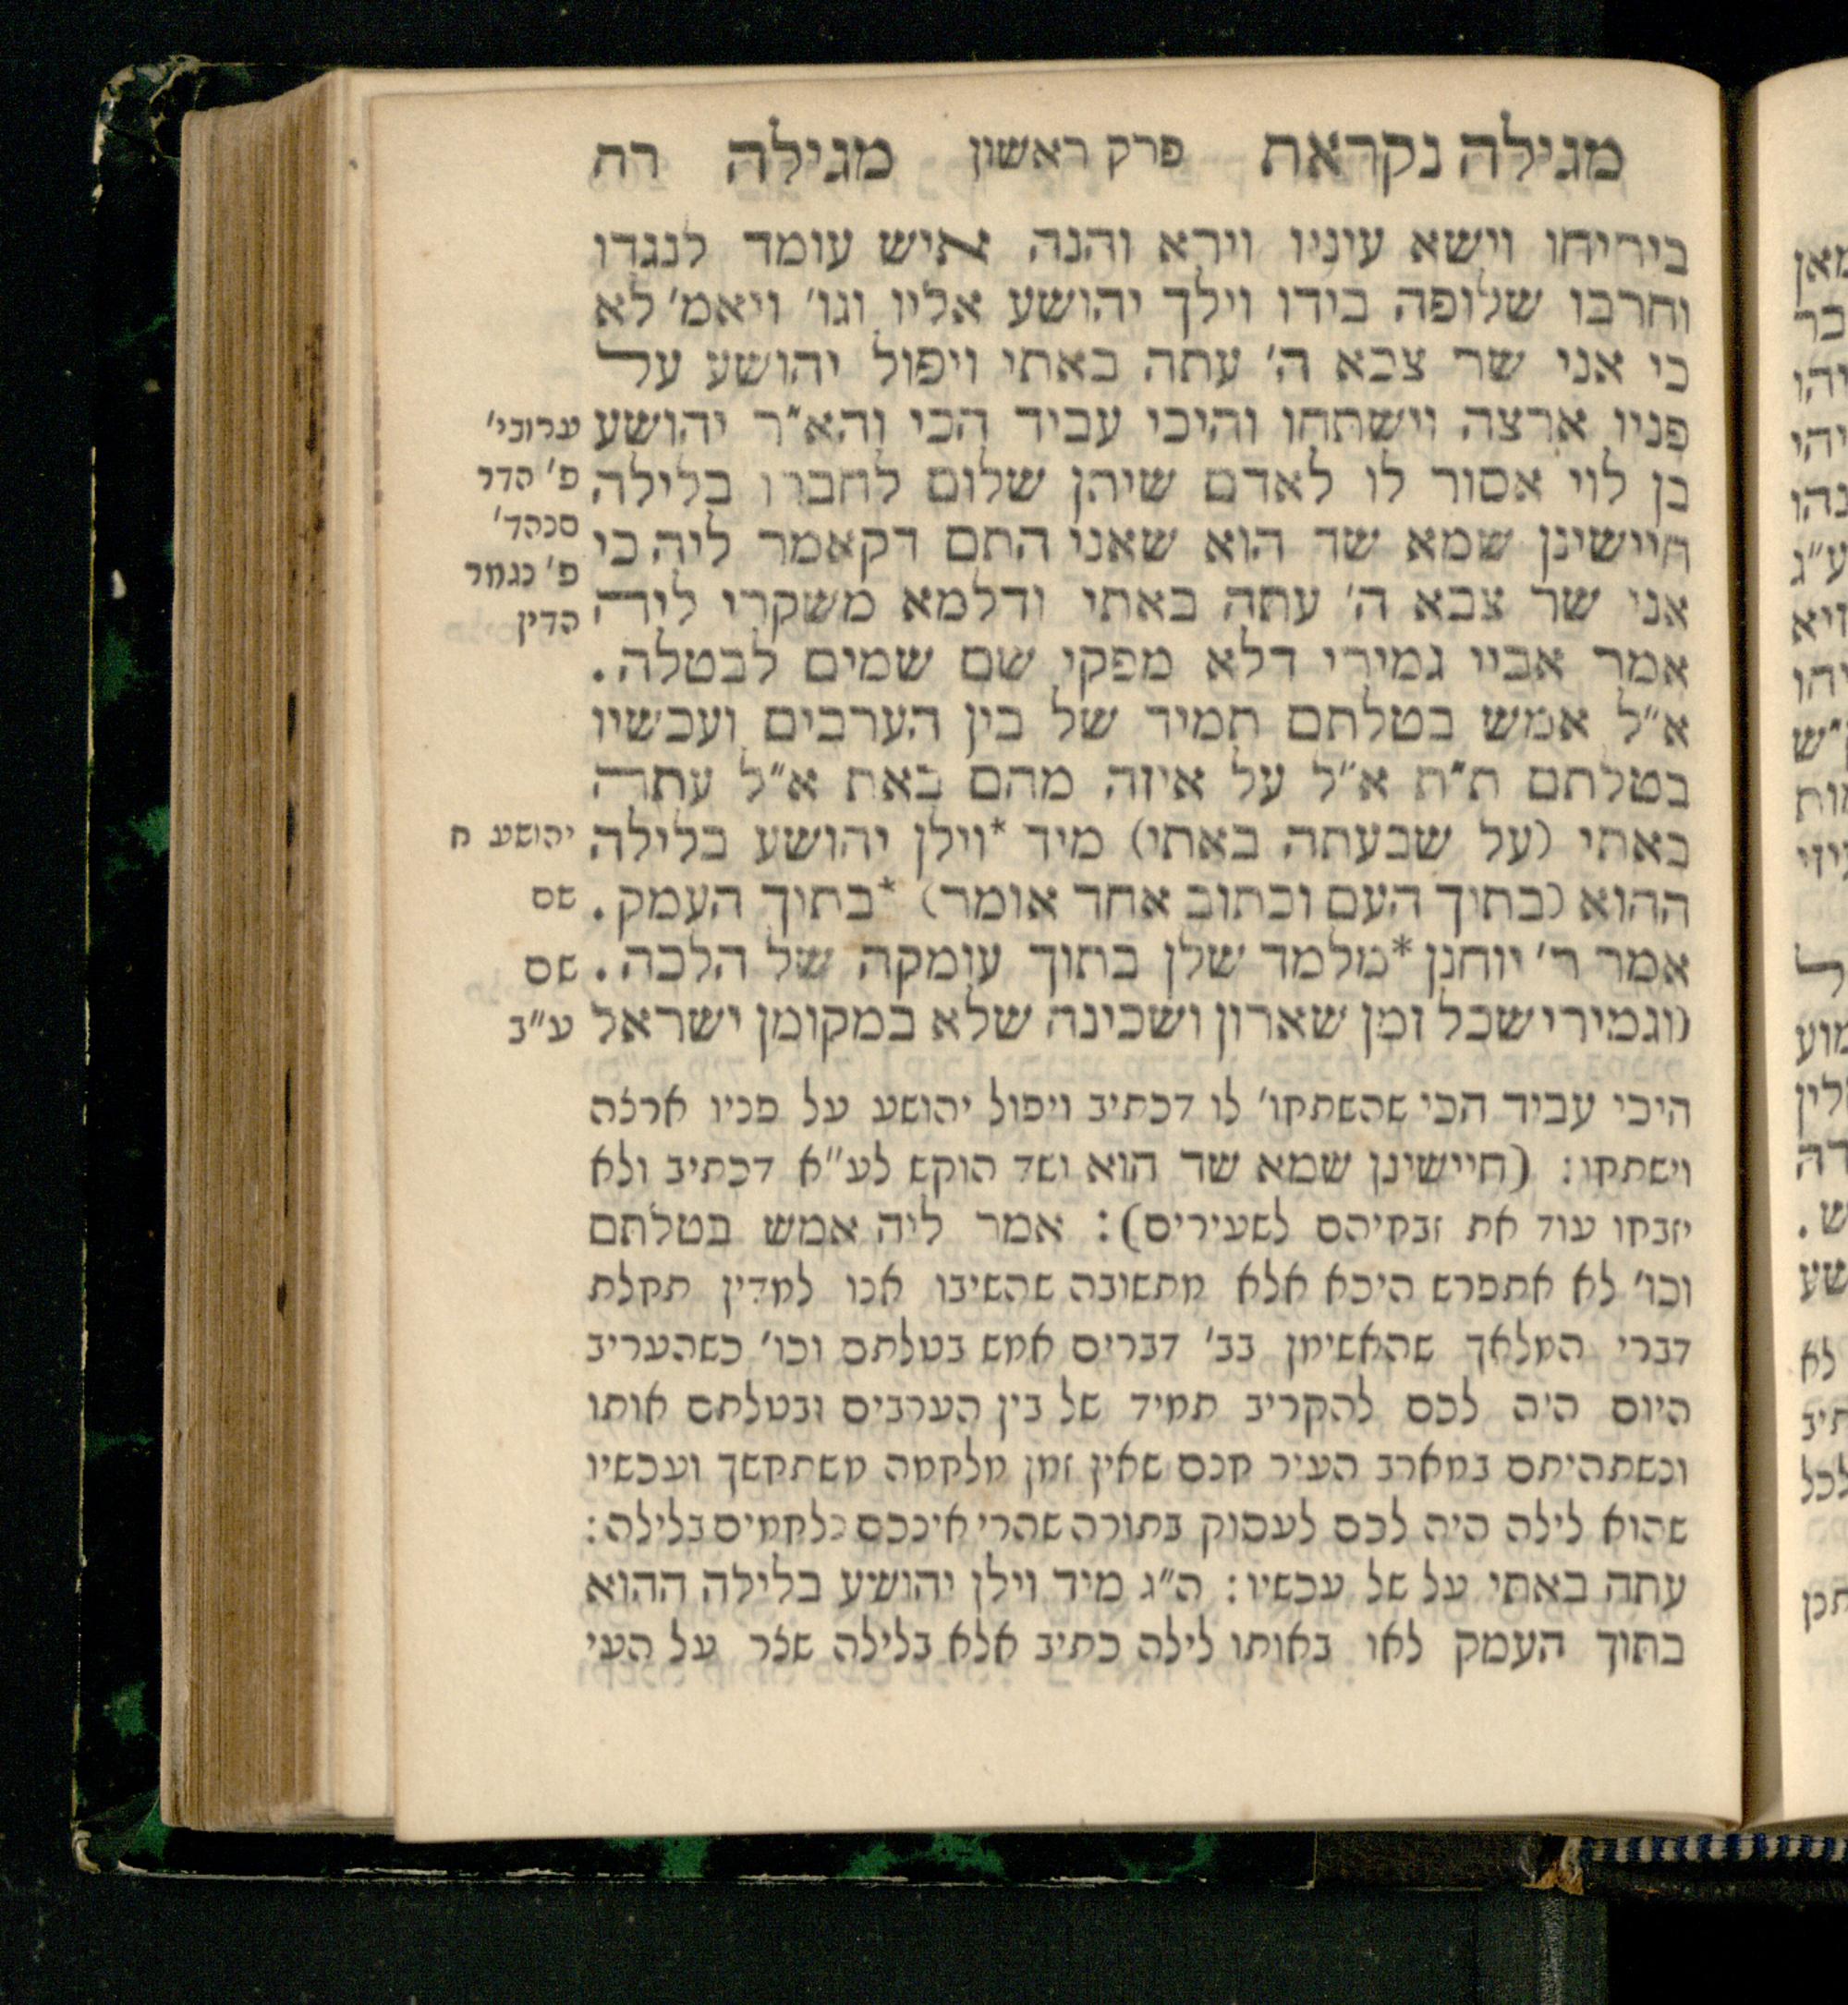 מגילה נקראת פרק ראשון מגילה רח
ביריחו וישא עיניו וירא והנה איש עומד לנגדו
וחרבו שלופה בידו וילך יהושע אליו וגו' ויאמ' לא
כי אני שר צבא ה' עתה באתי ויפול יהושע על
פניו ארצה וישתחו והיכי עביד הכי והא"ר יהושע
בן לוי אסור לו לאדם שיתן שלום לחברו בלילה
חיישינן שמא שד הוא שאני התם דקאמר ליה כי
אני שר צבא ה' עתה באתי ודלמא משקרי ליה
אמר אביי גמירי דלא מפקי שם שמים לבטלה.
א"ל אמש בטלתם תמיד של בין הערבים ועכשיו
בטלתם ת"ת א"ל על איזה מהם באת א"ל עתה
באתי (על שבעתה באתי) מיד *וילן יהושע בלילה
ההוא (בתוך העם וכתוב אחד אומר) *בתוך העמק.
אמר ר' יוחנן *מלמד שלן בתוך עומקה של הלכה.
(וגמירי שכל זמן שארון ושכינה שלא במקומן ישראל
ערובי'
פ' הדר
סנהד'
פ' נגמר
הדין
יהושע ח
שם
שם
ע"ב
היכי עביד הכי שהשתחו' לו דכתיב ויפול יהושע על פניו ארצה
וישתחו: (חיישינן שמא שד הוא ושד הוקש לע"א דכתיב ולא
יזבחו עוד את זבחיהם לשעירים): אמר ליה אמש בטלתם
וכו' לא אתפרש היכא אלא מתשובה שהשיבו אנו למדין תחלת
דברי המלאך שהאשימן בב' דברים אמש בטלתם וכו' כשהעריב
היום היה לכם להקריב תמיד של בין הערבים ובטלתם אותו
וכשתהיתם במארב העיר חנם שאין זמן מלחמה משתחשך ועכשיו
שהוא לילה היה לכם לעסוק בתורה שהרי אינכם נלחמים בלילה:
עתה באתי על של עכשיו: ה"ג מיד וילן יהושע בלילה ההוא
בתוך העמק לאו באותו לילה כתיב אלא בלילה שצר על העי